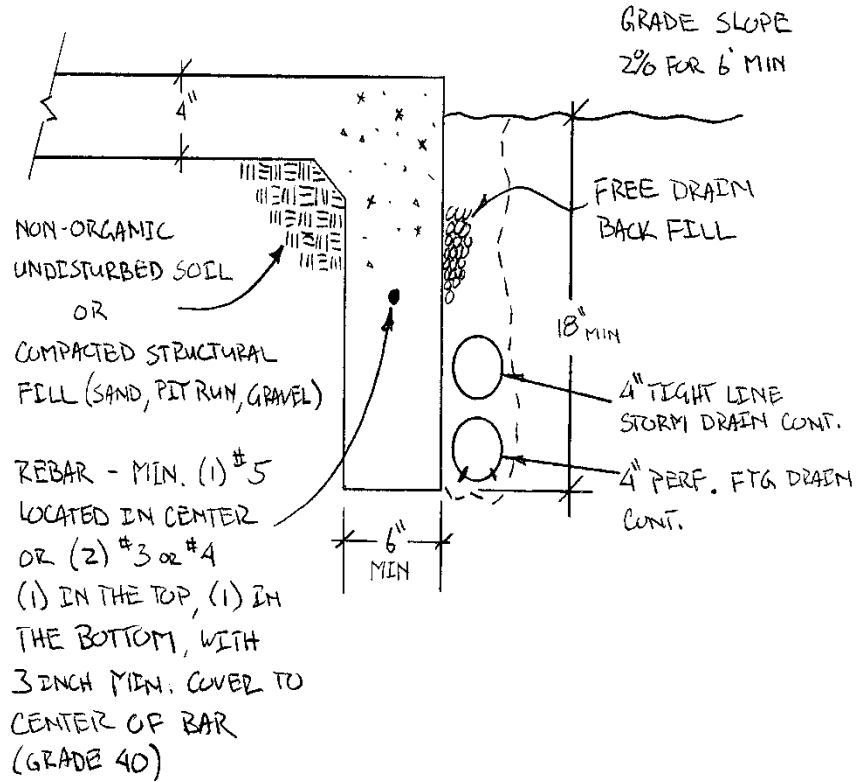 GRADE SLOPE
2% FOR 6' MIN
4"
NON-ORGANIC
UNDISTURBED SOIL
OR
COMPACTED STRUCTURAL
FILL (SAND, PIT RUN, GRAVEL)
FREE DRAIN
BACK FILL
18" MIN
4" TIGHT LINE
STORM DRAIN CONT.
4" PERF. FTG DRAIN
CONT.
REBAR - MIN. (1) #5
LOCATED IN CENTER
OR (2) #3 OR #4
(1) IN THE TOP, (1) IN
THE BOTTOM, WITH
3 INCH MIN. COVER TO
CENTER OF BAR
(GRADE 40)
6"
MIN